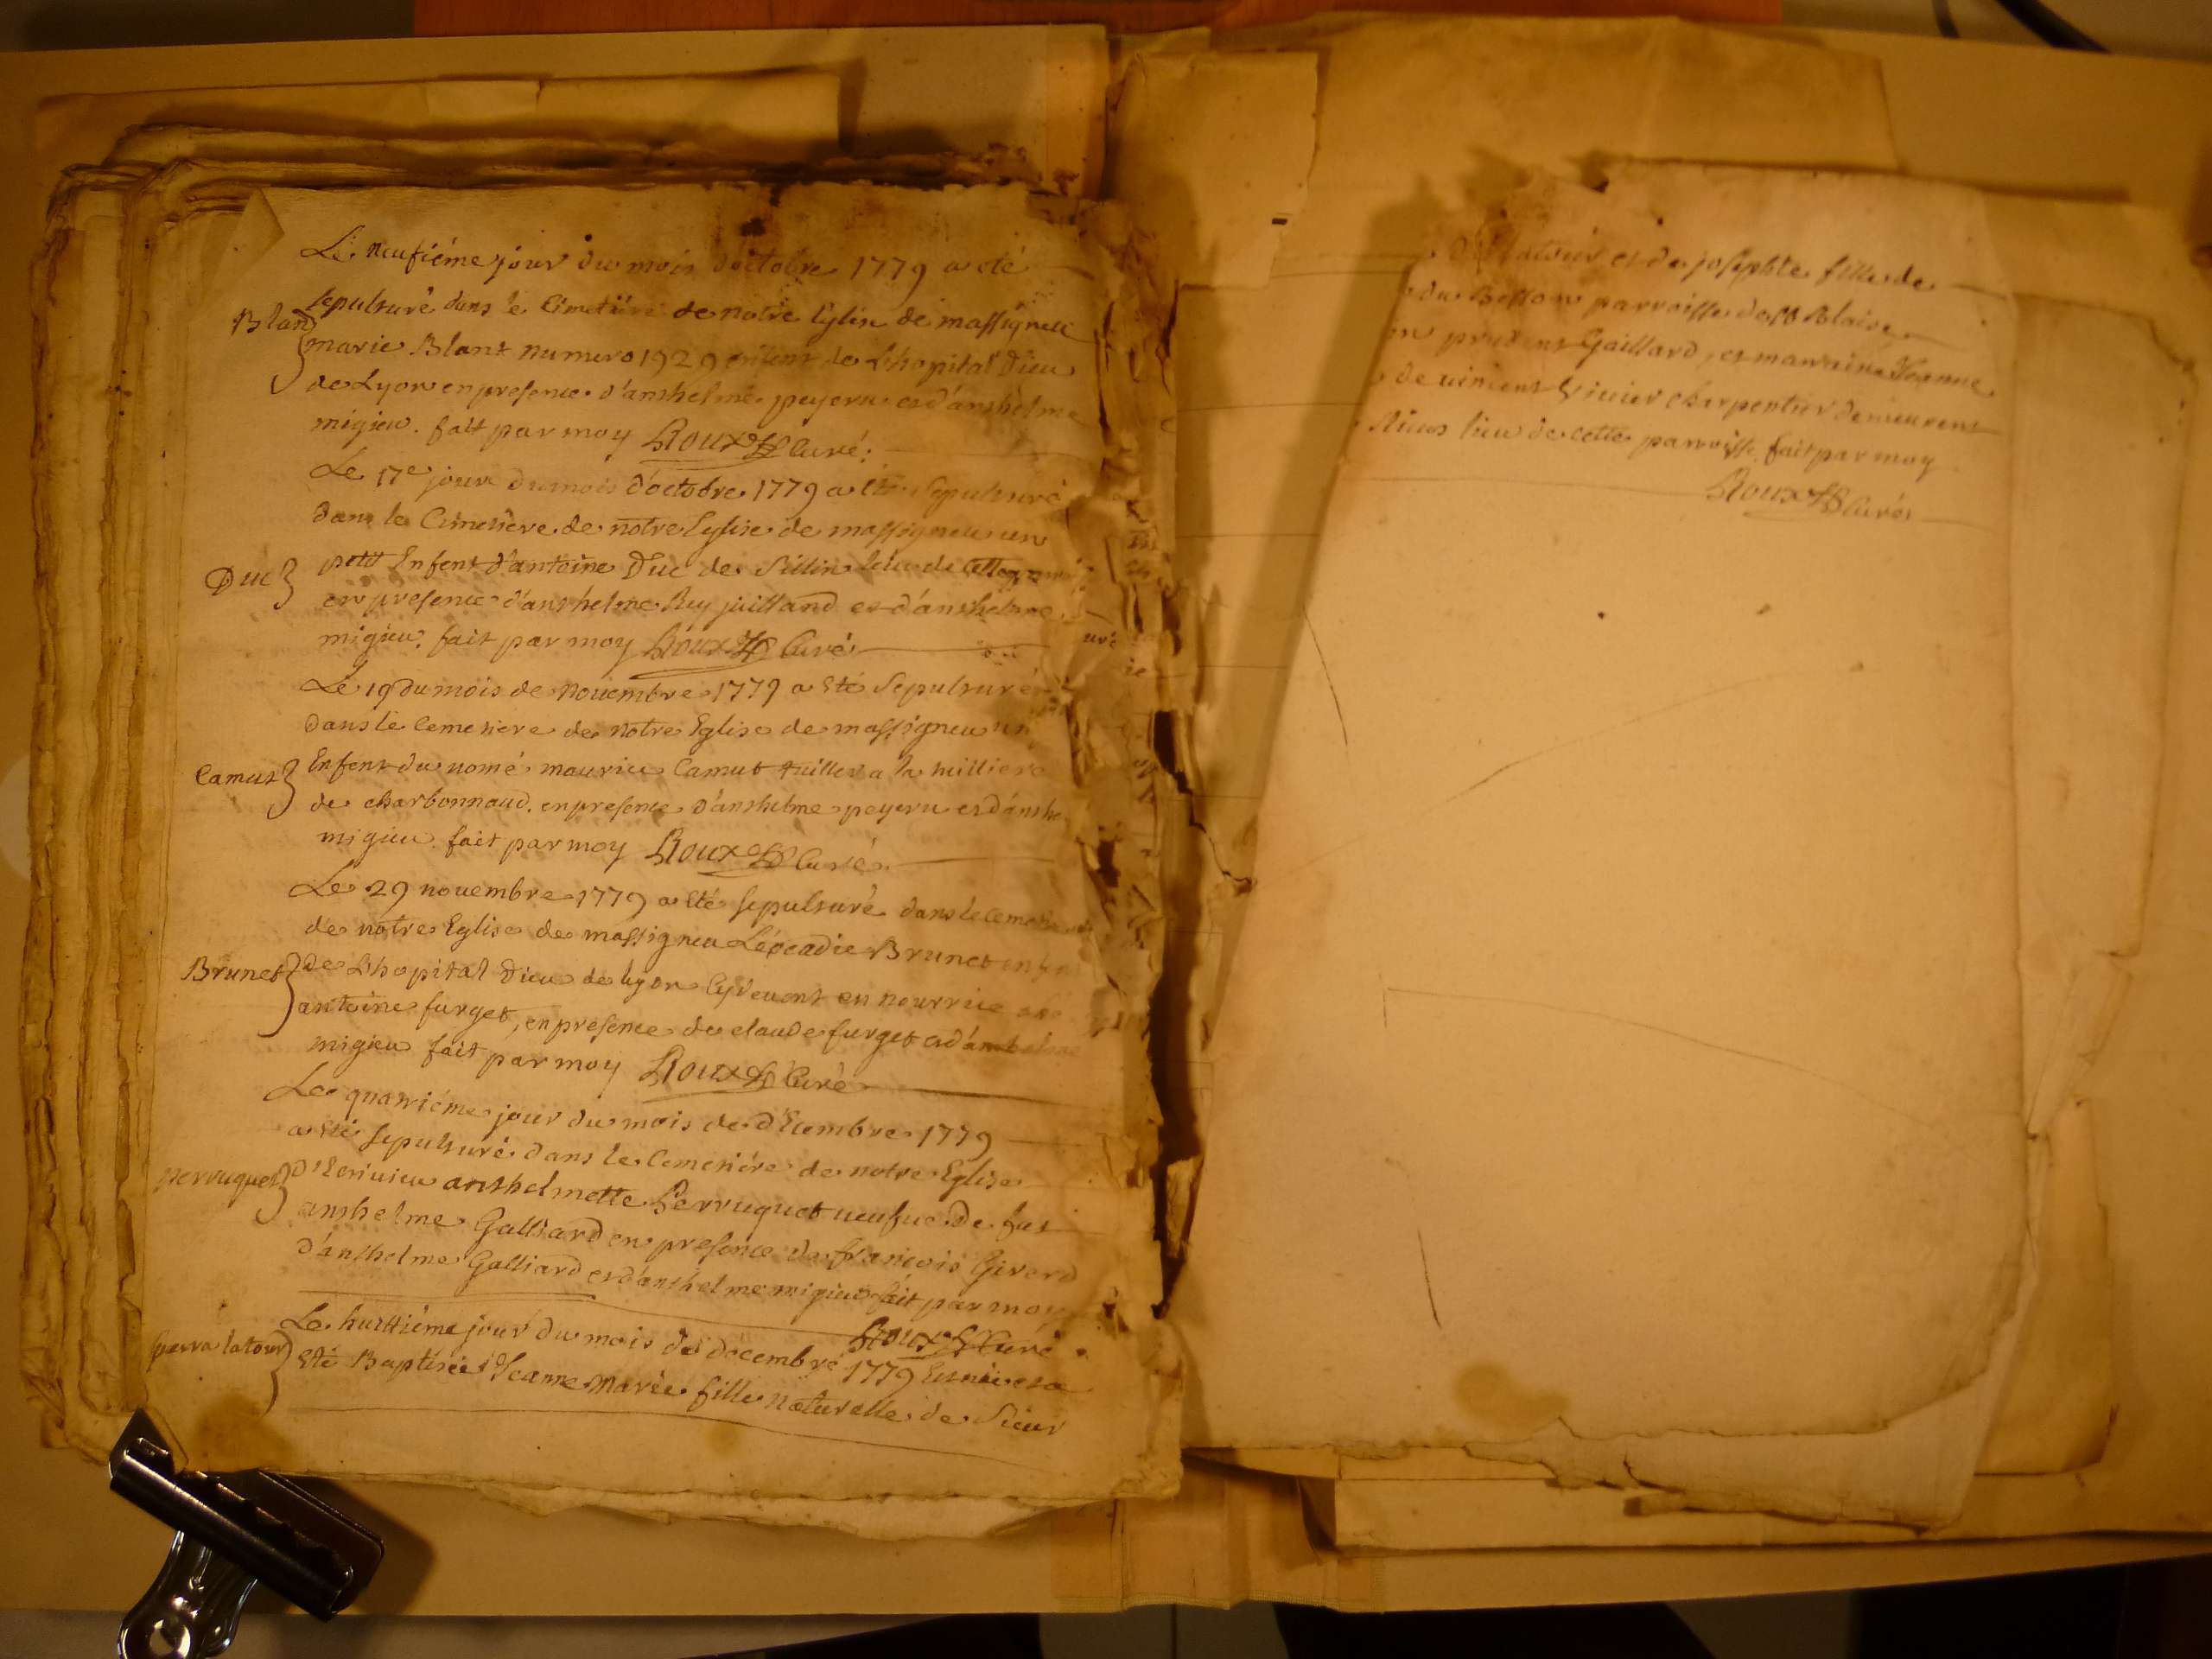 Le neufiéme jour du mois d'octobre 1779 a eté
sepulturé dans le Cimetiére de notre Eglise de massigneu
Blanz
marie Blant numero 1929 enfent de Lhopital Dieu
de Lyon en presence d'anthelme peyeru et d'anthelme
migieu. fait par moy Roux Curé.
Le 17e jour du mois d'octobre 1779 a eté Sepulturé
dans le Cimetiere de notre Eglise de massigneu un
Duc
petit Enfent d'antoine Duc de Sillin lieu de cette
en presence d'anthelme Rey juilland et d'anthelme
migieu. fait par moy Roux Curé
Le 19 du mois de Novembre 1779 a Eté Sepulturé
dans le Cemetiere de Notre Eglise de massigneu un
Camut
Enfent du nomé maurice Camut tuillier a la
de charbonnaud. en presence d'anthelme peyeru et d'anthe
migieu. fait par moy Roux Curé
Le 29 novembre 1779 a Eté sepulturé dans le
de notre Eglise de massigneu Léocadie Brunet
Brunet
de Lhopital Dieu de lyon Cydevent en nourrice
antoine furget, en presence de claude furget et d'anthelme
migieu fait par moy Roux Curé
Le quatriéme jour du mois de dEcembre 1779
a Eté sepulturé dans le Cemetiére de notre Eglise
Perruquet
anthelmette Perruquet veufue de fut
anthelme Galliard en presence de francois Girerd
d'anthelme Galliard et d'anthelme migieu fait par moy
Roux Curé
Le huittiéme jour du mois de decembre 1779 Est née et a
perra latour
Eté Baptisée Jeanne Marie fille naturelle de Sieur
et de josephte fille de
du parroisse de St Blaise
Gaillard, et marraine Jeanne
de charpentier demeurent
lieu de cette parroisse fait par moy
Roux Curé